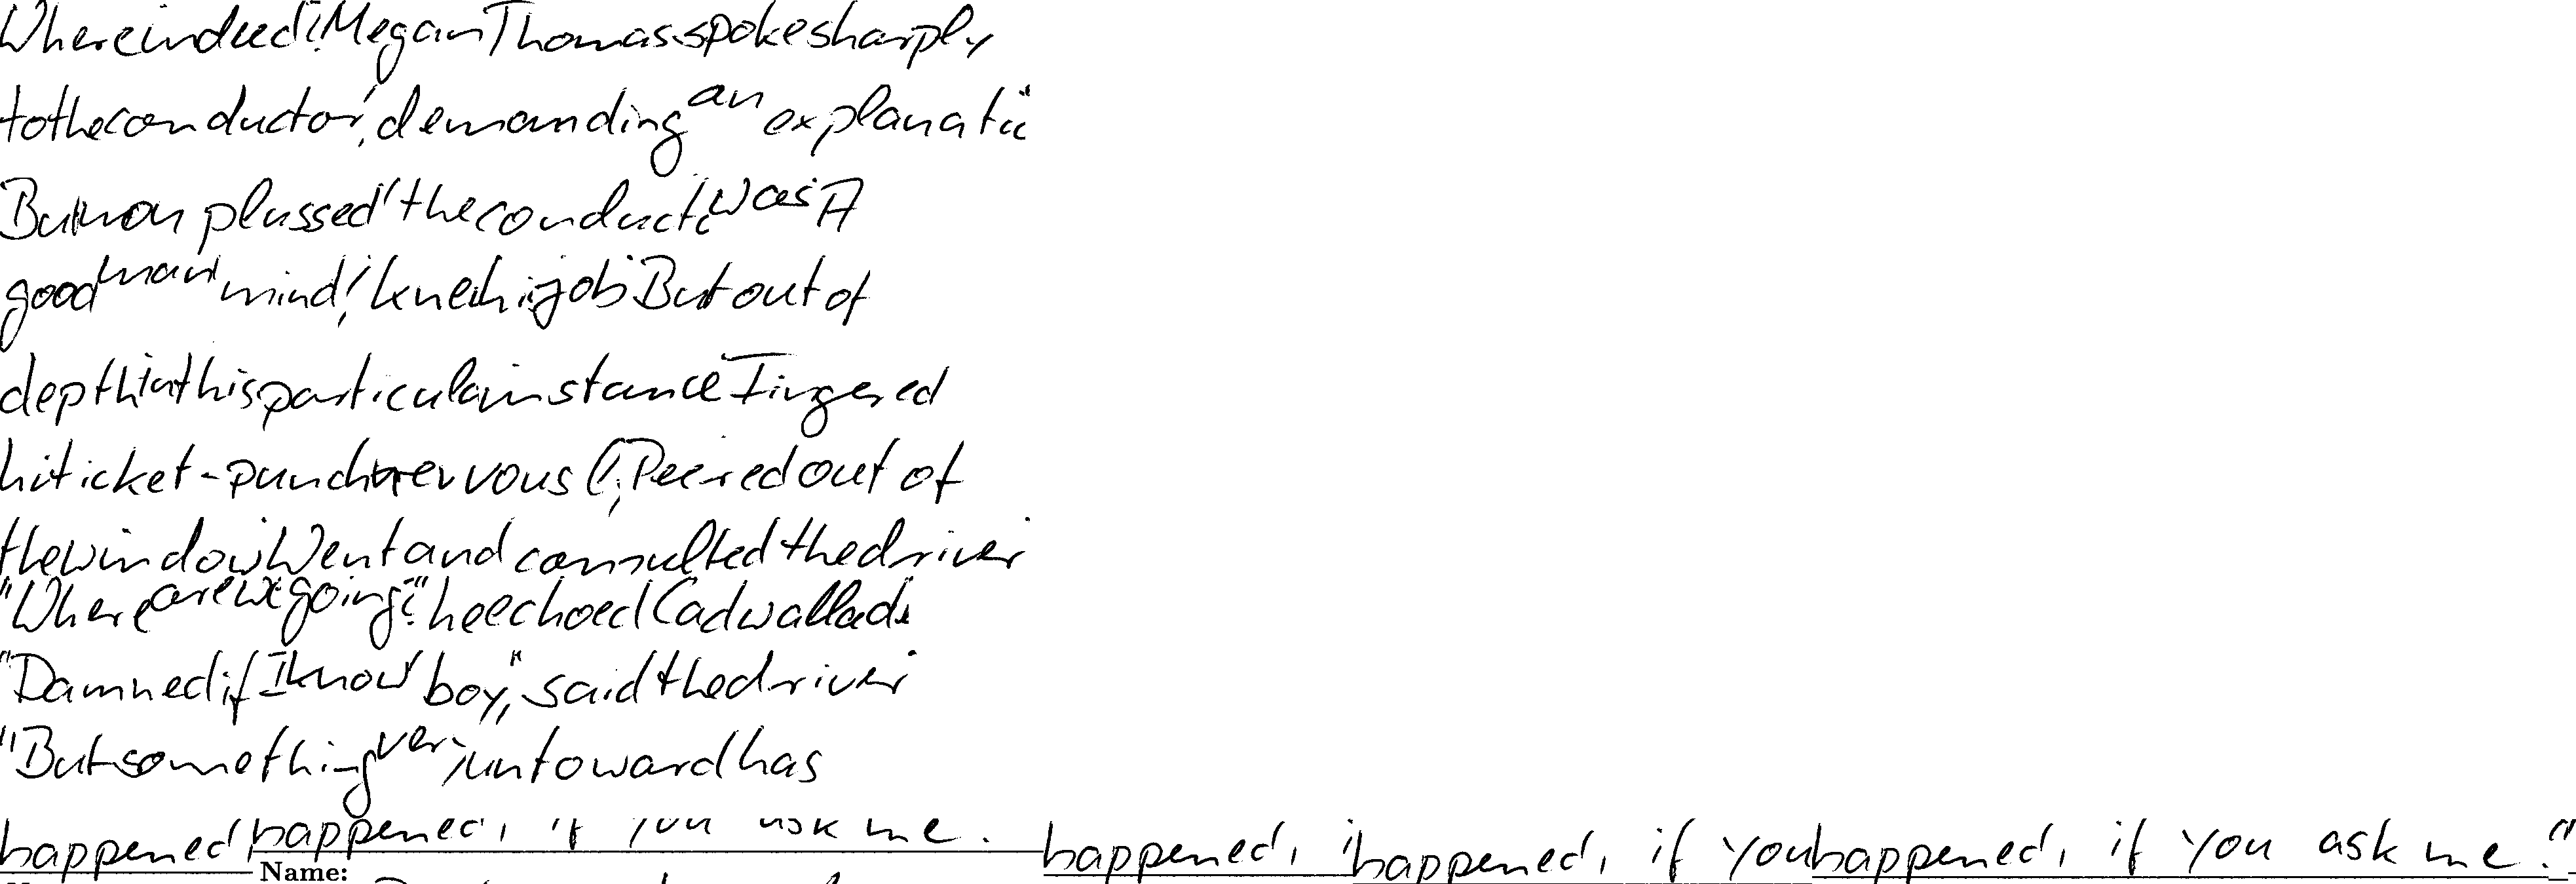 Where indeed? Megan Thomas spoke sharply
to the conductor, demanding an explanati
But nonplussed the conduct was A
good man mind! knew his job But out of
depth in this particular instance Fingered
his ticket-punch nervously, Peered out of
the window Went and consulted the driver
"Where are we going?" he echoed Cadwallader
"Damned if I know boy," said the driver
"But something very untoward has
happened, happened, if you ask me. happened, i happened, if you happened, if you ask me."
Name: